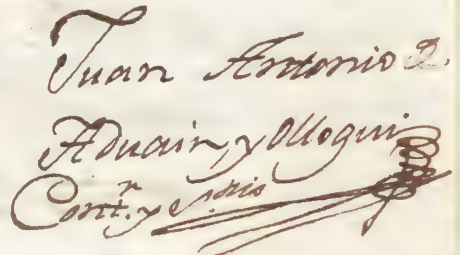 Juan Antonio d.
Aduain, y Olloqui
Cont.r y S.rio